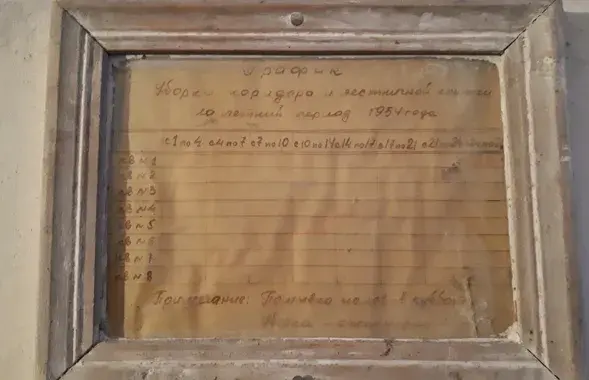 График
Уборки коридора и лестничной клетки
на летний период 1954 года
с 1 по 4 с 4 по 7 с 7 по 10 с 10 по 14 с 14 по 17 с 17 по 21 с 21 по 24
кв № 1
кв № 2
кв № 3
кв № 4
кв № 5
кв № 6
кв № 7
кв № 8
Примечание: Помывка полов в субботу